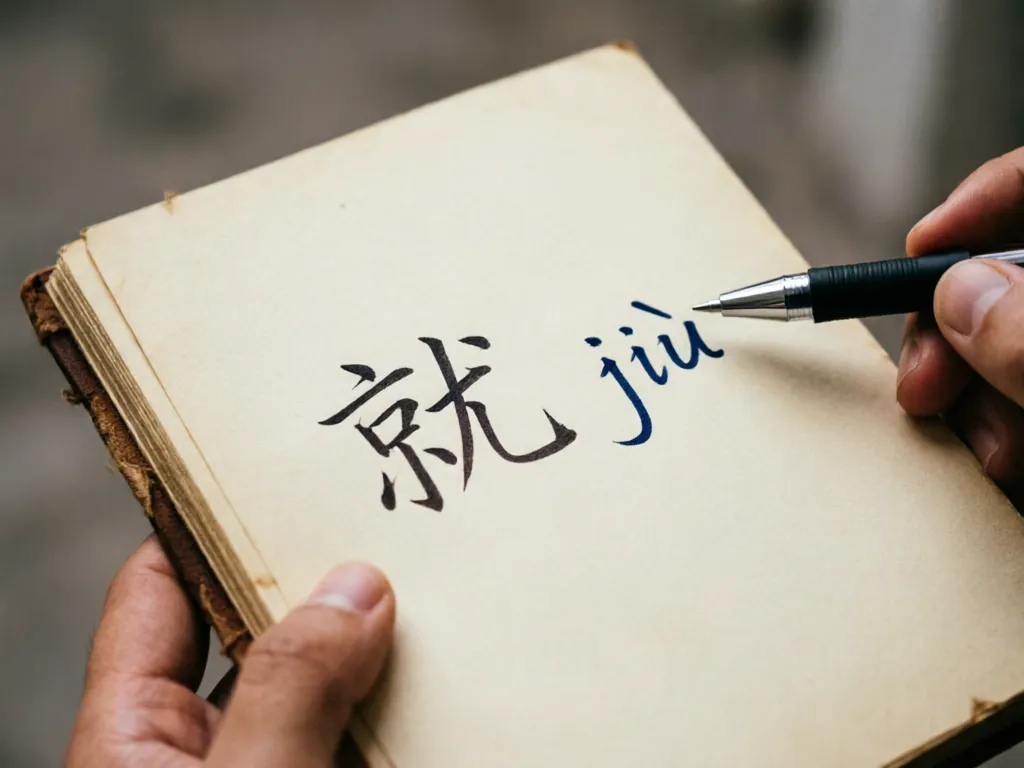 就 jiù